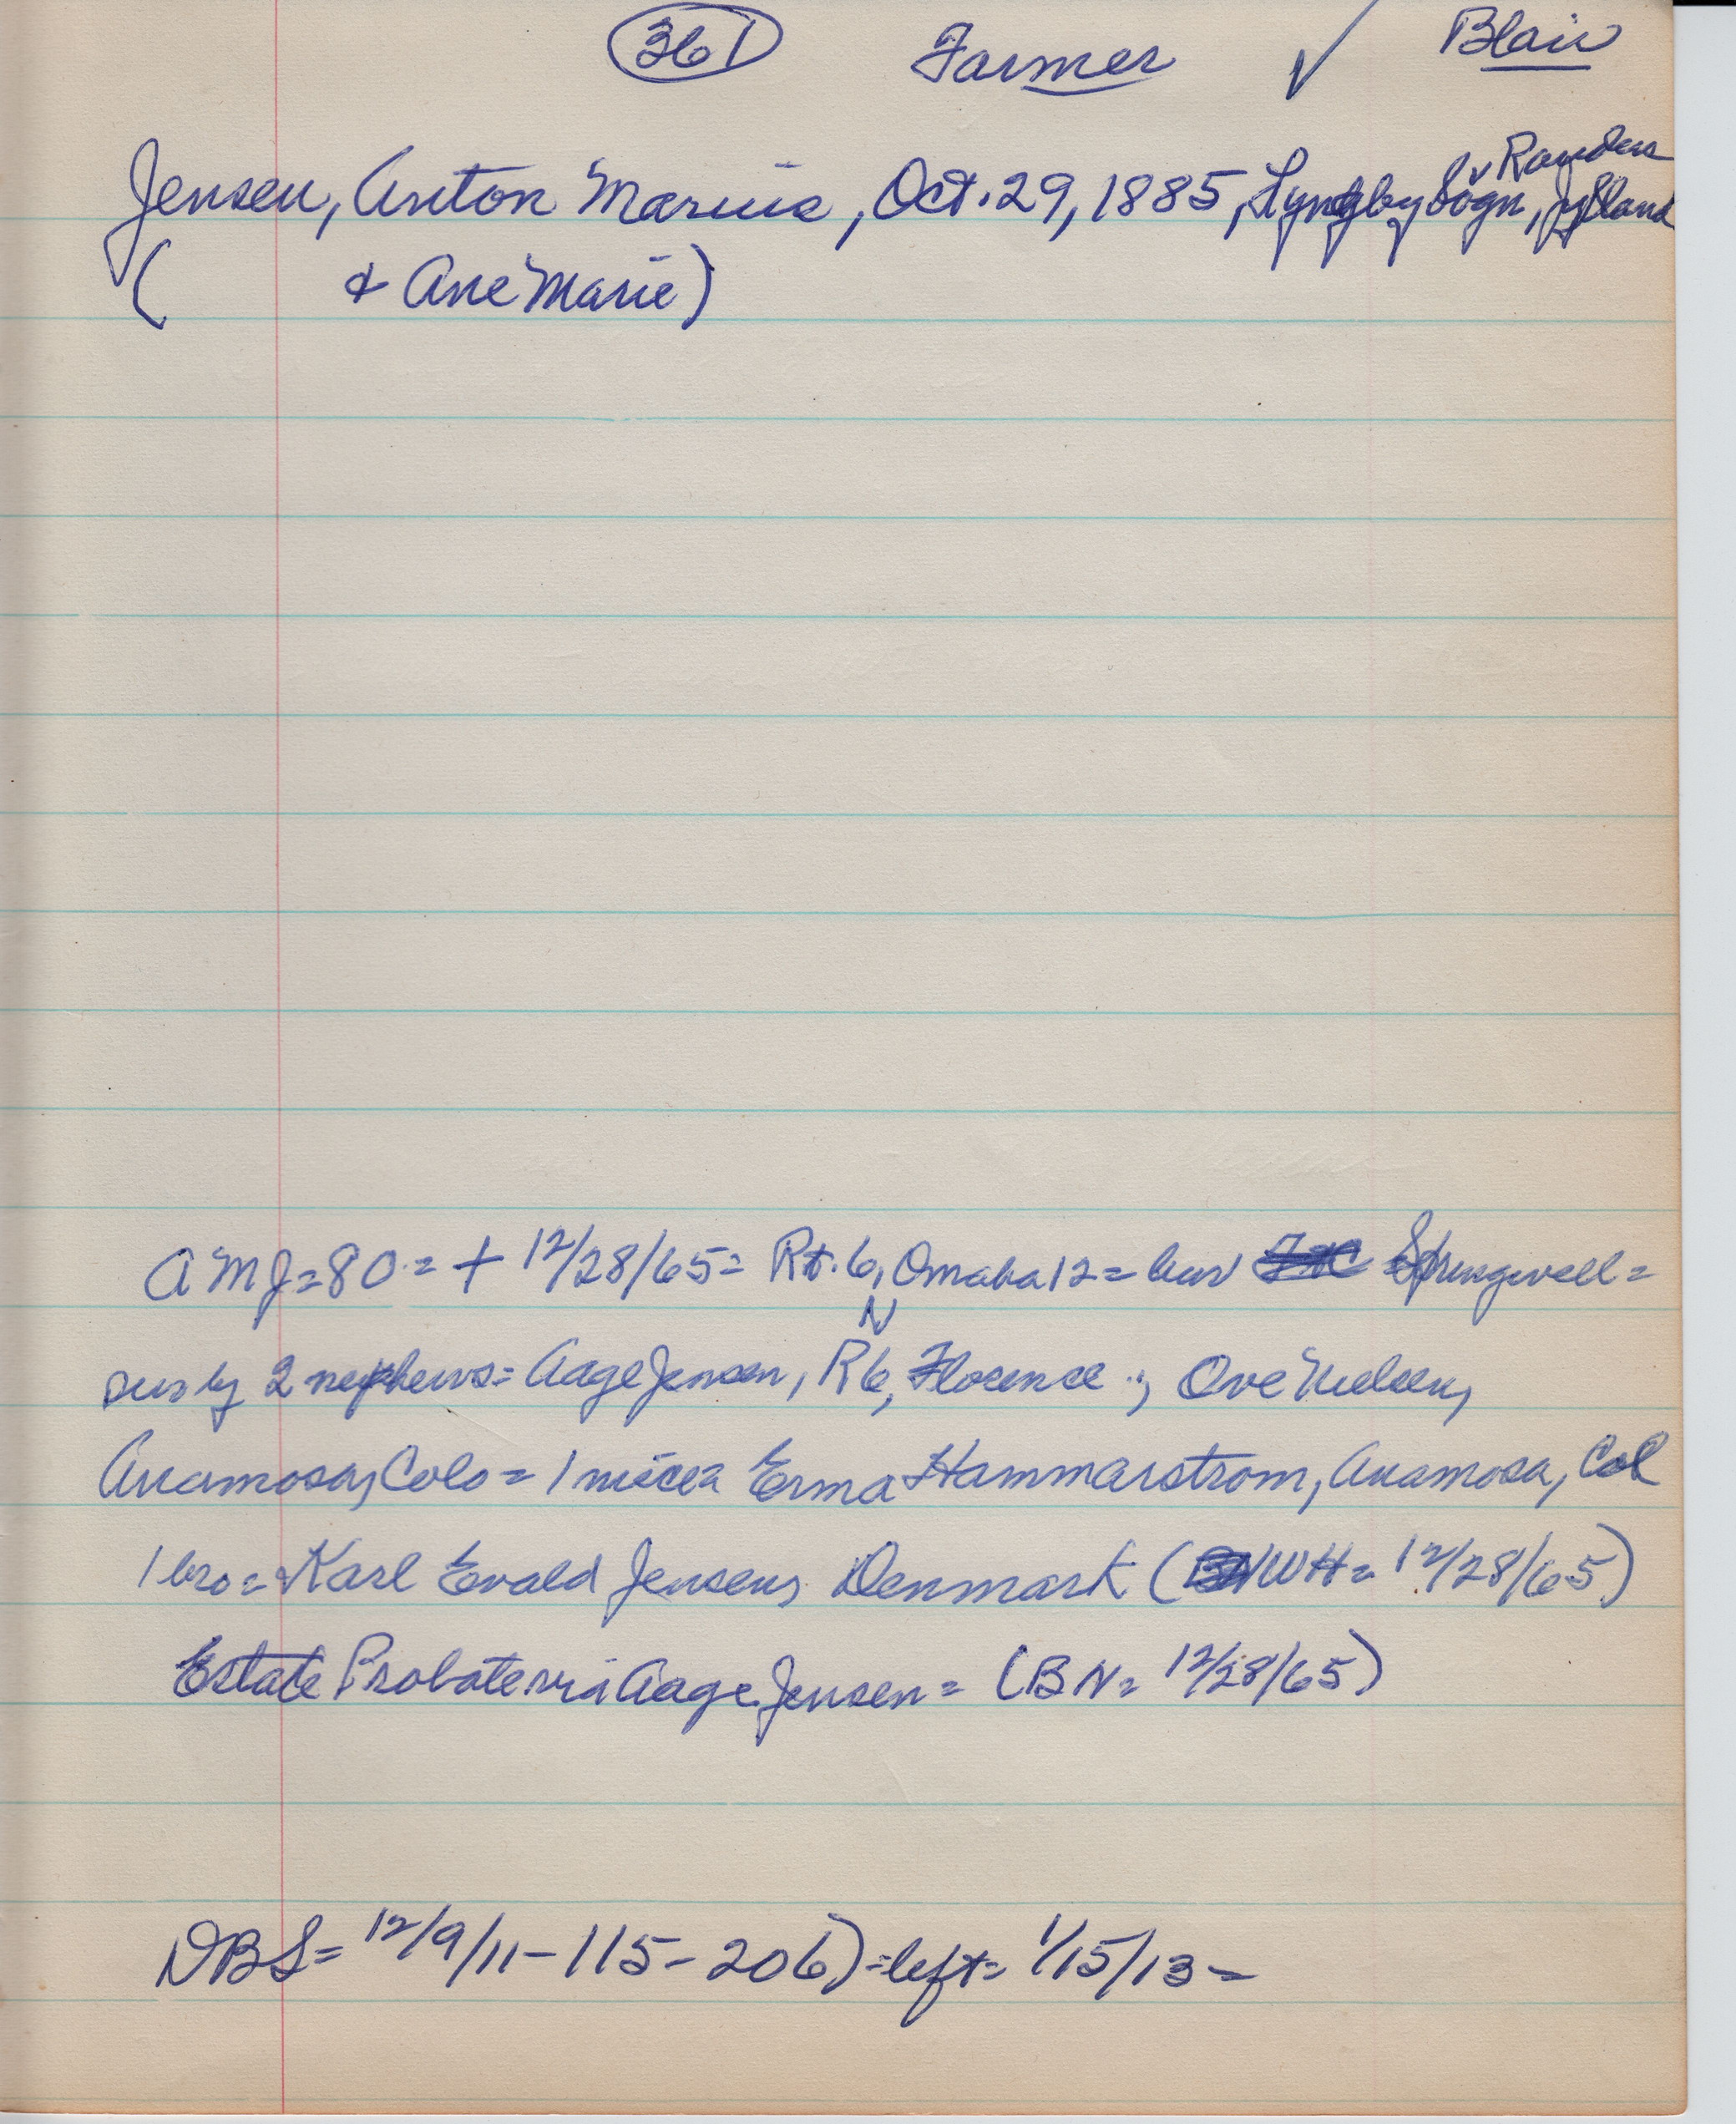 361 Farmer ✓ Blair
Jensen, Anton Marius, Oct. 29, 1885, Lyngby Sogn, v Randers Jylland
( & Ane Marie)
AMJ = 80 = + 12/28/65 = Rt. 6, Omaha 12 = bur Springwell =
surv by 2 nephews = Aage Jensen, R 6, N Florence ; Ove Nielsen,
Anamosa, Colo = 1 niece = Erma Hammarstrom, Anamosa, Col
1 bro = Karl Evald Jensen, Denmark (WH = 12/28/65)
Estate Probate via Aage Jensen = (BN = 12/28/65)
DBS = 12/9/11 - 115 - 206) = left = 1/15/13 =